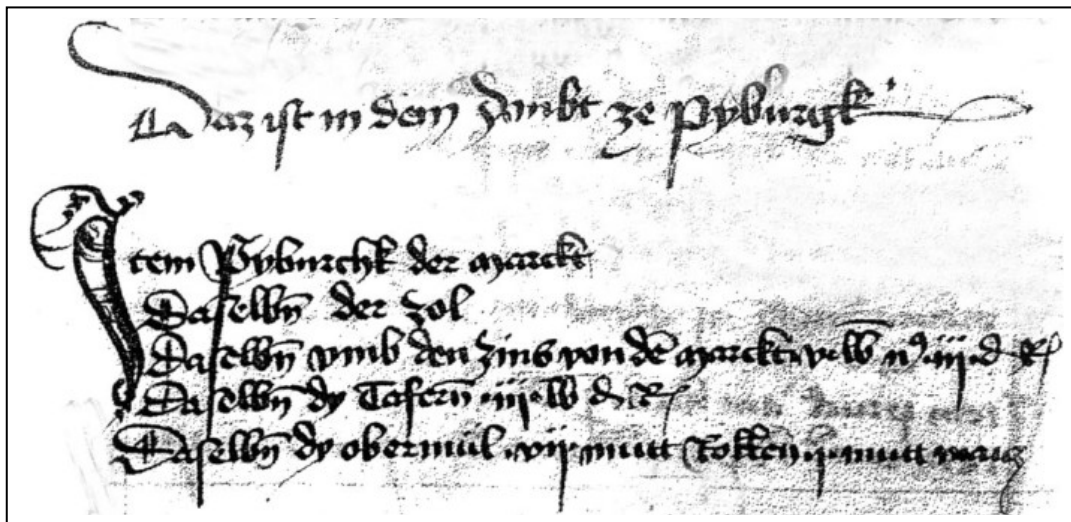 Daz ist in dem Ambt ze Pyburgk
Item Pyburchk der marckt
Daselbn̄ der zol
Daselbn̄ vmb den zins von dē marckt v lb n̄ iii d R
Daselbn̄ dy Tafern̄ iii lb d R
Daselbn̄ dy obermül vii mutt Rokken ii mutt waicz